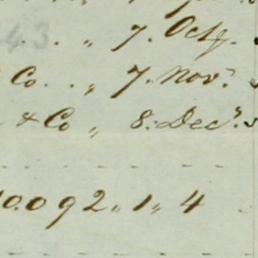 . . „ 7. Octr.
Co. . „ 7. Novr.
& Co „ 8. Decr.
0.092„ 1„ 4